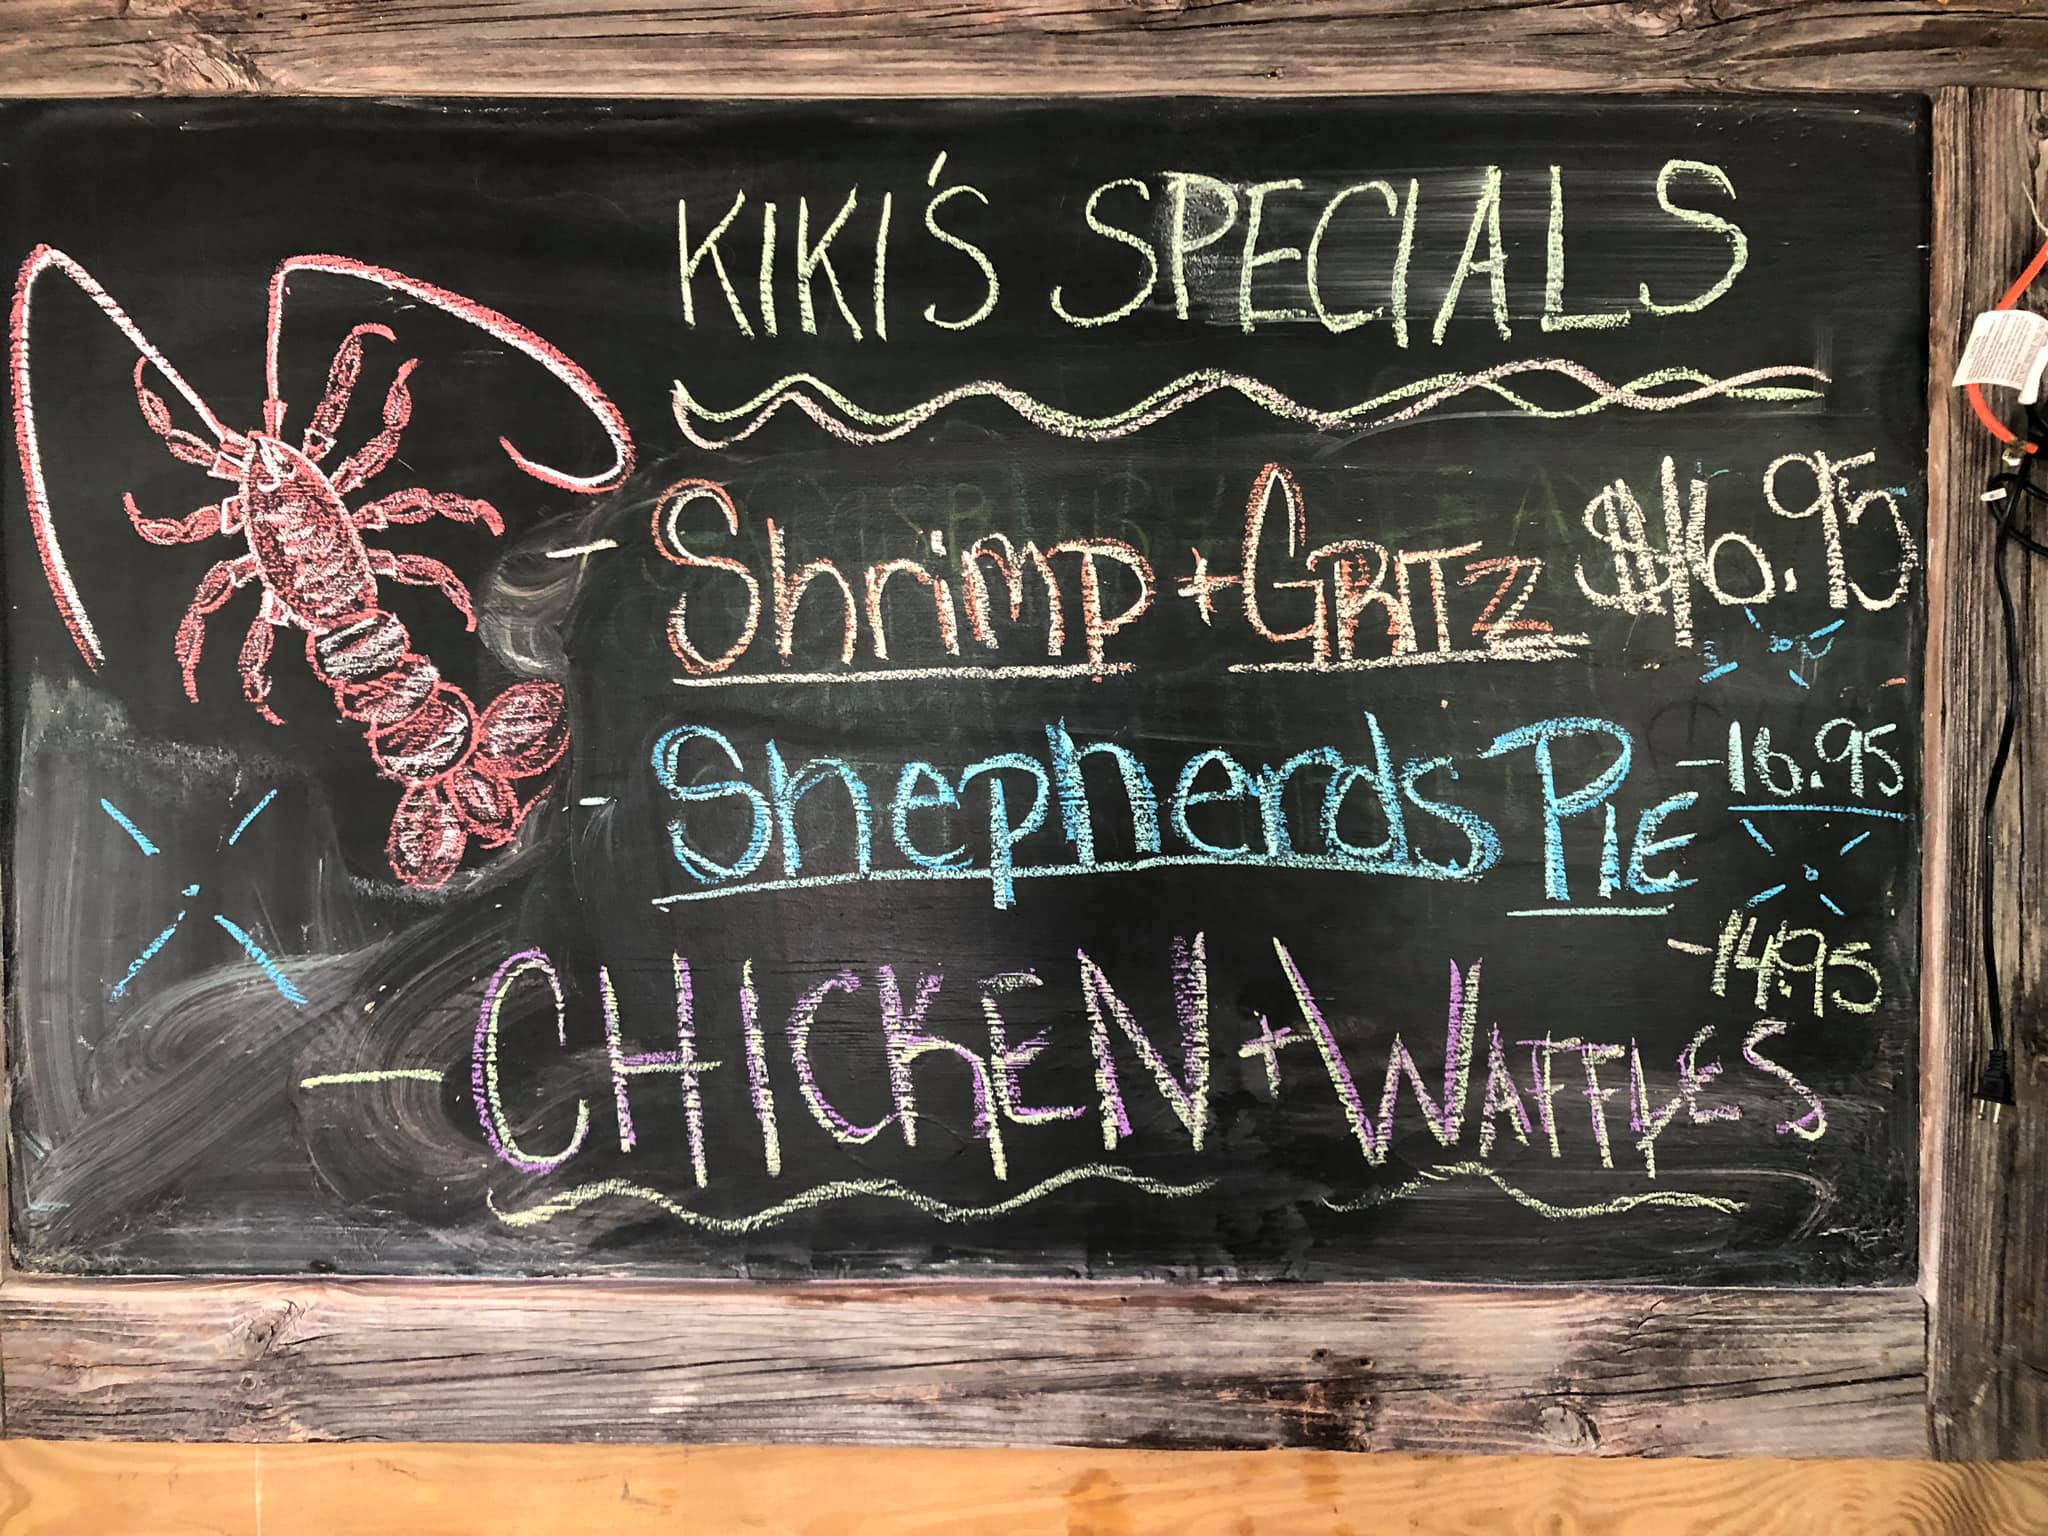 KIKI'S SPECIALS
- Shrimp + GRITZ $16.95
- Shepherds PIE -16.95
-14.95
- CHICKEN + WAFFLES